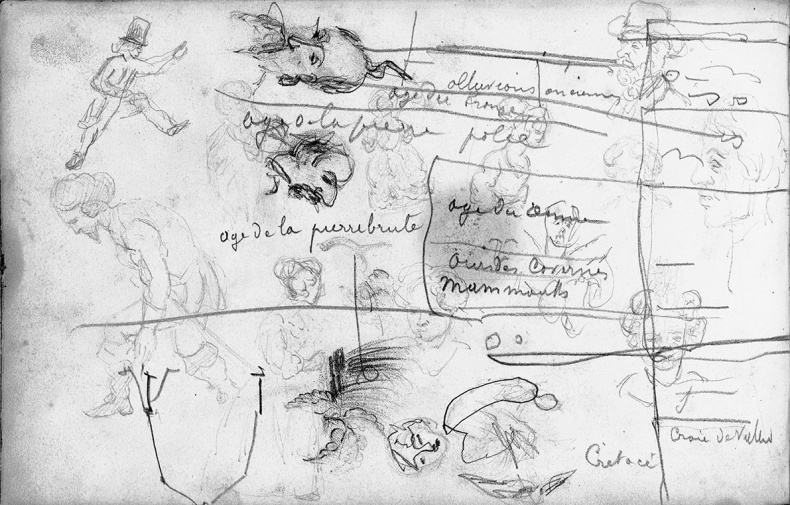 alluvions anciennes
age du bronze
age de la pierre polie
age de la pierre brute
age du renne
Ours des Cavernes
Mammouths
Craie de
Crétacé